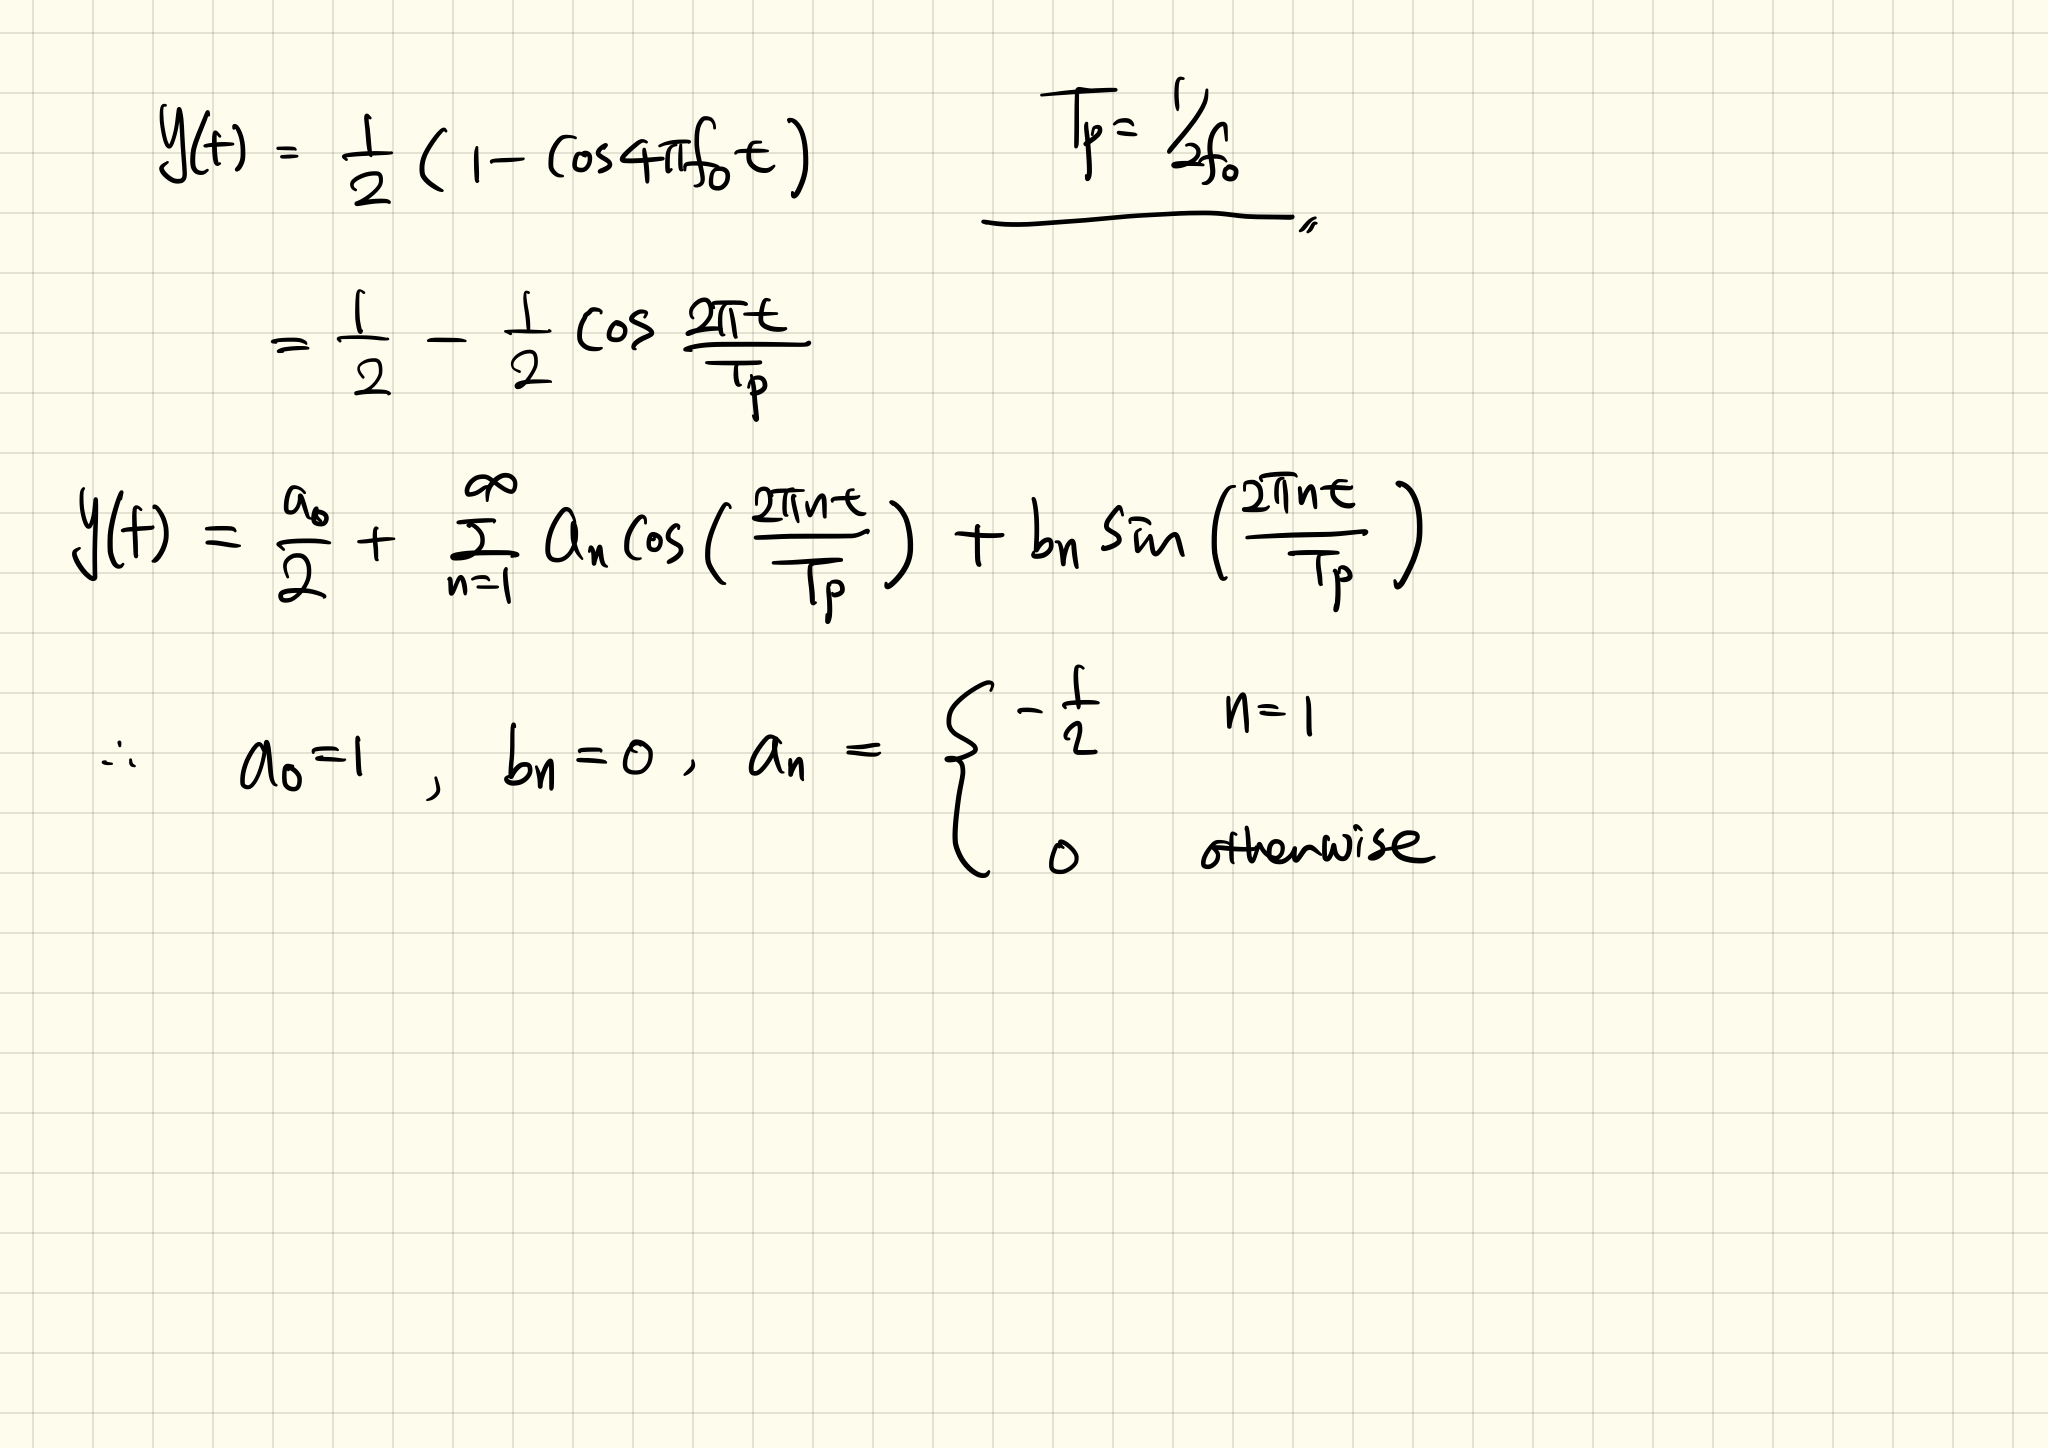 y(t) = 1/2 (1 - cos4πf₀t)    Tp = 1/2f₀
= 1/2 - 1/2 cos 2πt/Tp
y(t) = a₀/2 + ∞ Σ n=1 aₙ cos(2πnt/Tp) + bₙ sin(2πnt/Tp)
∴ a₀=1 , bₙ=0 , aₙ = { -1/2    n=1
0    otherwise